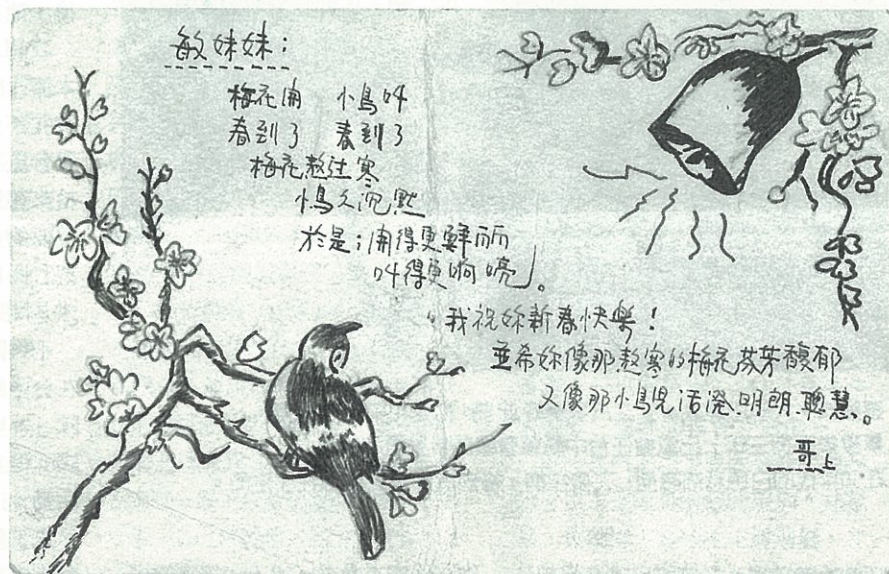 敏妹妹：
梅花開　小鳥叫
春到了　春到了
梅花熬过寒
小鳥久沉默
於是；開得更鮮丽
叫得更响亮」。
我祝妳新春快樂！
並希妳像那熬寒的梅花芬芳馥郁
又像那小鳥兒活潑.明朗.聰慧。
哥上